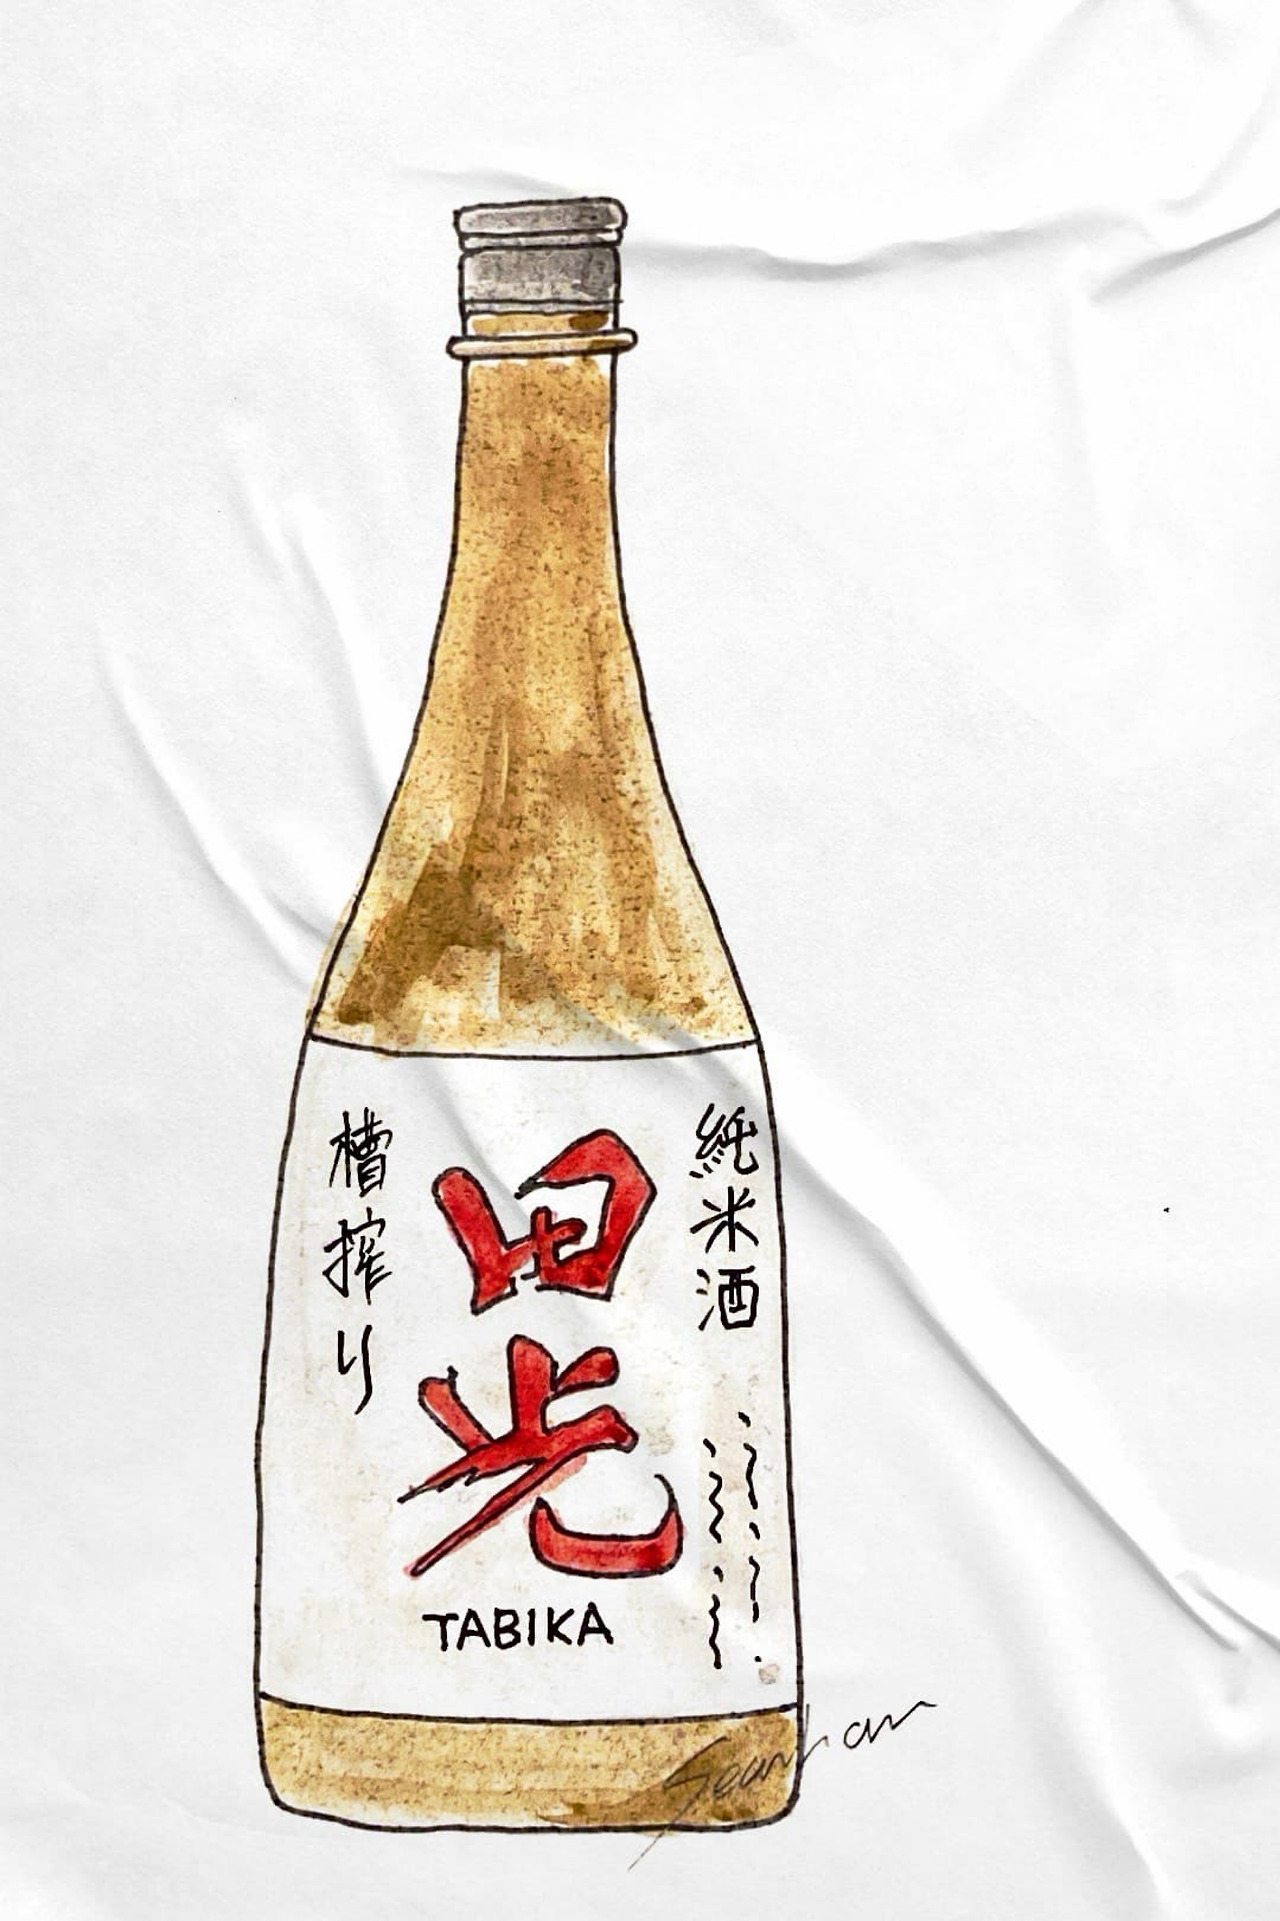 純米酒
田光
槽搾り
TABIKA